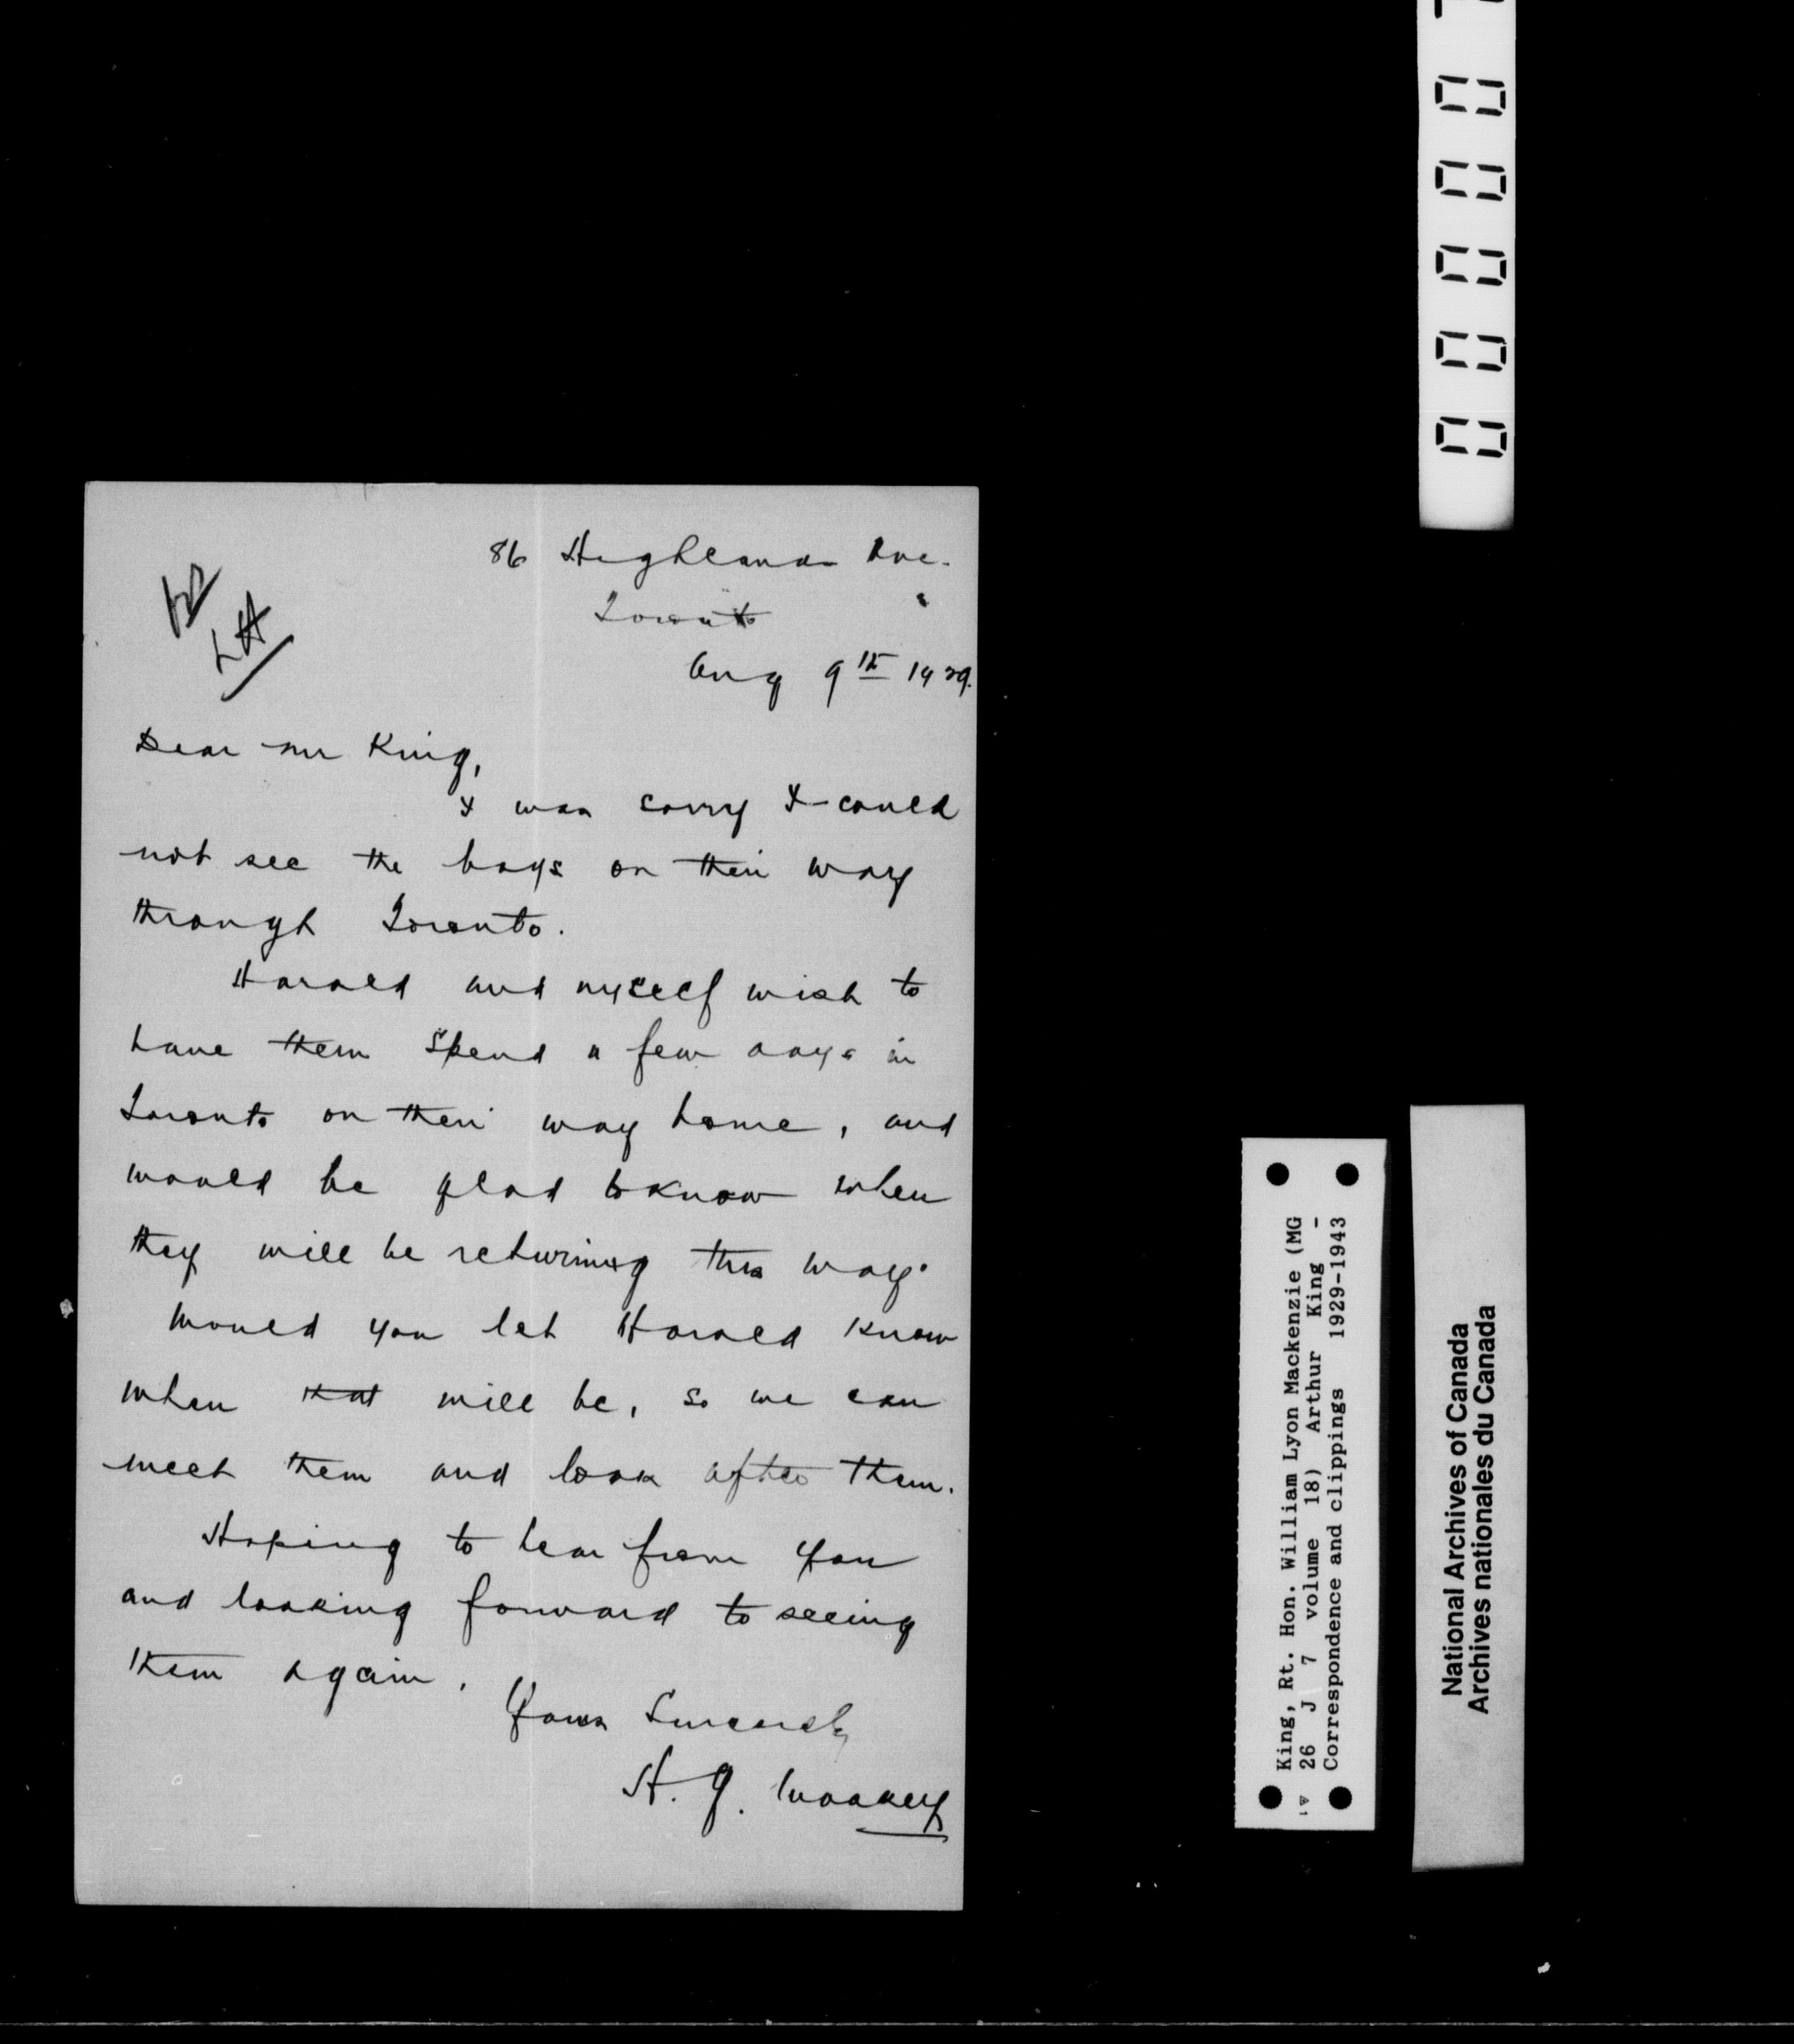 86 Highland Ave.
Toronto
Aug 9th 1929.
Dear Mr King,
I was sorry I could
not see the boys on their way
through Toronto.
Harold and myself wish to
have them spend a few days in
Toronto on their way home, and
would be glad to know when
they will be returning this way.
Would you let Harold know
when that will be, so we can
meet them and look after them.
Hoping to hear from you
and looking forward to seeing
them again.
Yours Sincerely
H. G. Wookey
King, Rt. Hon. William Lyon Mackenzie (MG
26 J 7 volume 18) Arthur King -
Correspondence and clippings 1929-1943
National Archives of Canada
Archives nationales du Canada